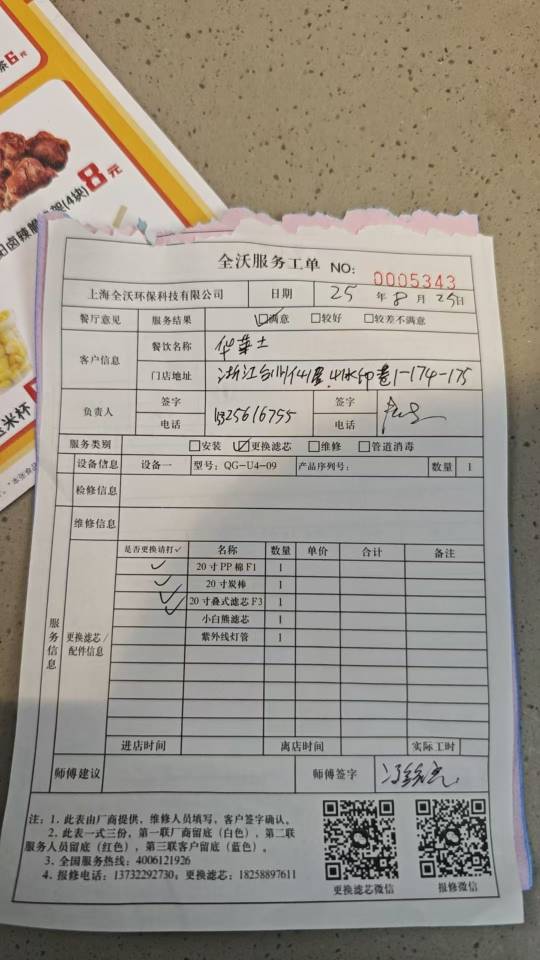 条6元
8元
卤辣脆
架(4块)
玉米杯
全沃服务工单 NO: 0005343
上海全沃环保科技有限公司 日期 25 年 8 月 25 日
餐厅意见 服务结果 ☑满意 □较好 □较差不满意
客户信息 餐饮名称 华莱士
门店地址 浙江台州仙居 水印巷1-174-175
负责人 签字 签字
电话 电话
服务类别 □安装 ☑更换滤芯 □维修 □管道消毒
设备信息 设备一 型号: QG-U4-09 产品序列号: 数量 1
检修信息
维修信息
服务信息
更换滤芯/配件信息
是否更换请打✓ 名称 数量 单价 合计 备注
✓ 20寸PP棉F1 1
✓ 20寸炭棒 1
✓ 20寸叠式滤芯F3 1
小白熊滤芯 1
紫外线灯管 1
进店时间 离店时间 实际工时
师傅建议 师傅签字
注: 1. 此表由厂商提供, 维修人员填写, 客户签字确认。
2. 此表一式三份, 第一联厂商留底 (白色), 第二联
服务人员留底 (红色), 第三联客户留底 (蓝色)。
3. 全国服务热线: 4006121926
4. 报修电话: 13732292730; 更换滤芯: 18258897611
更换滤芯微信 报修微信